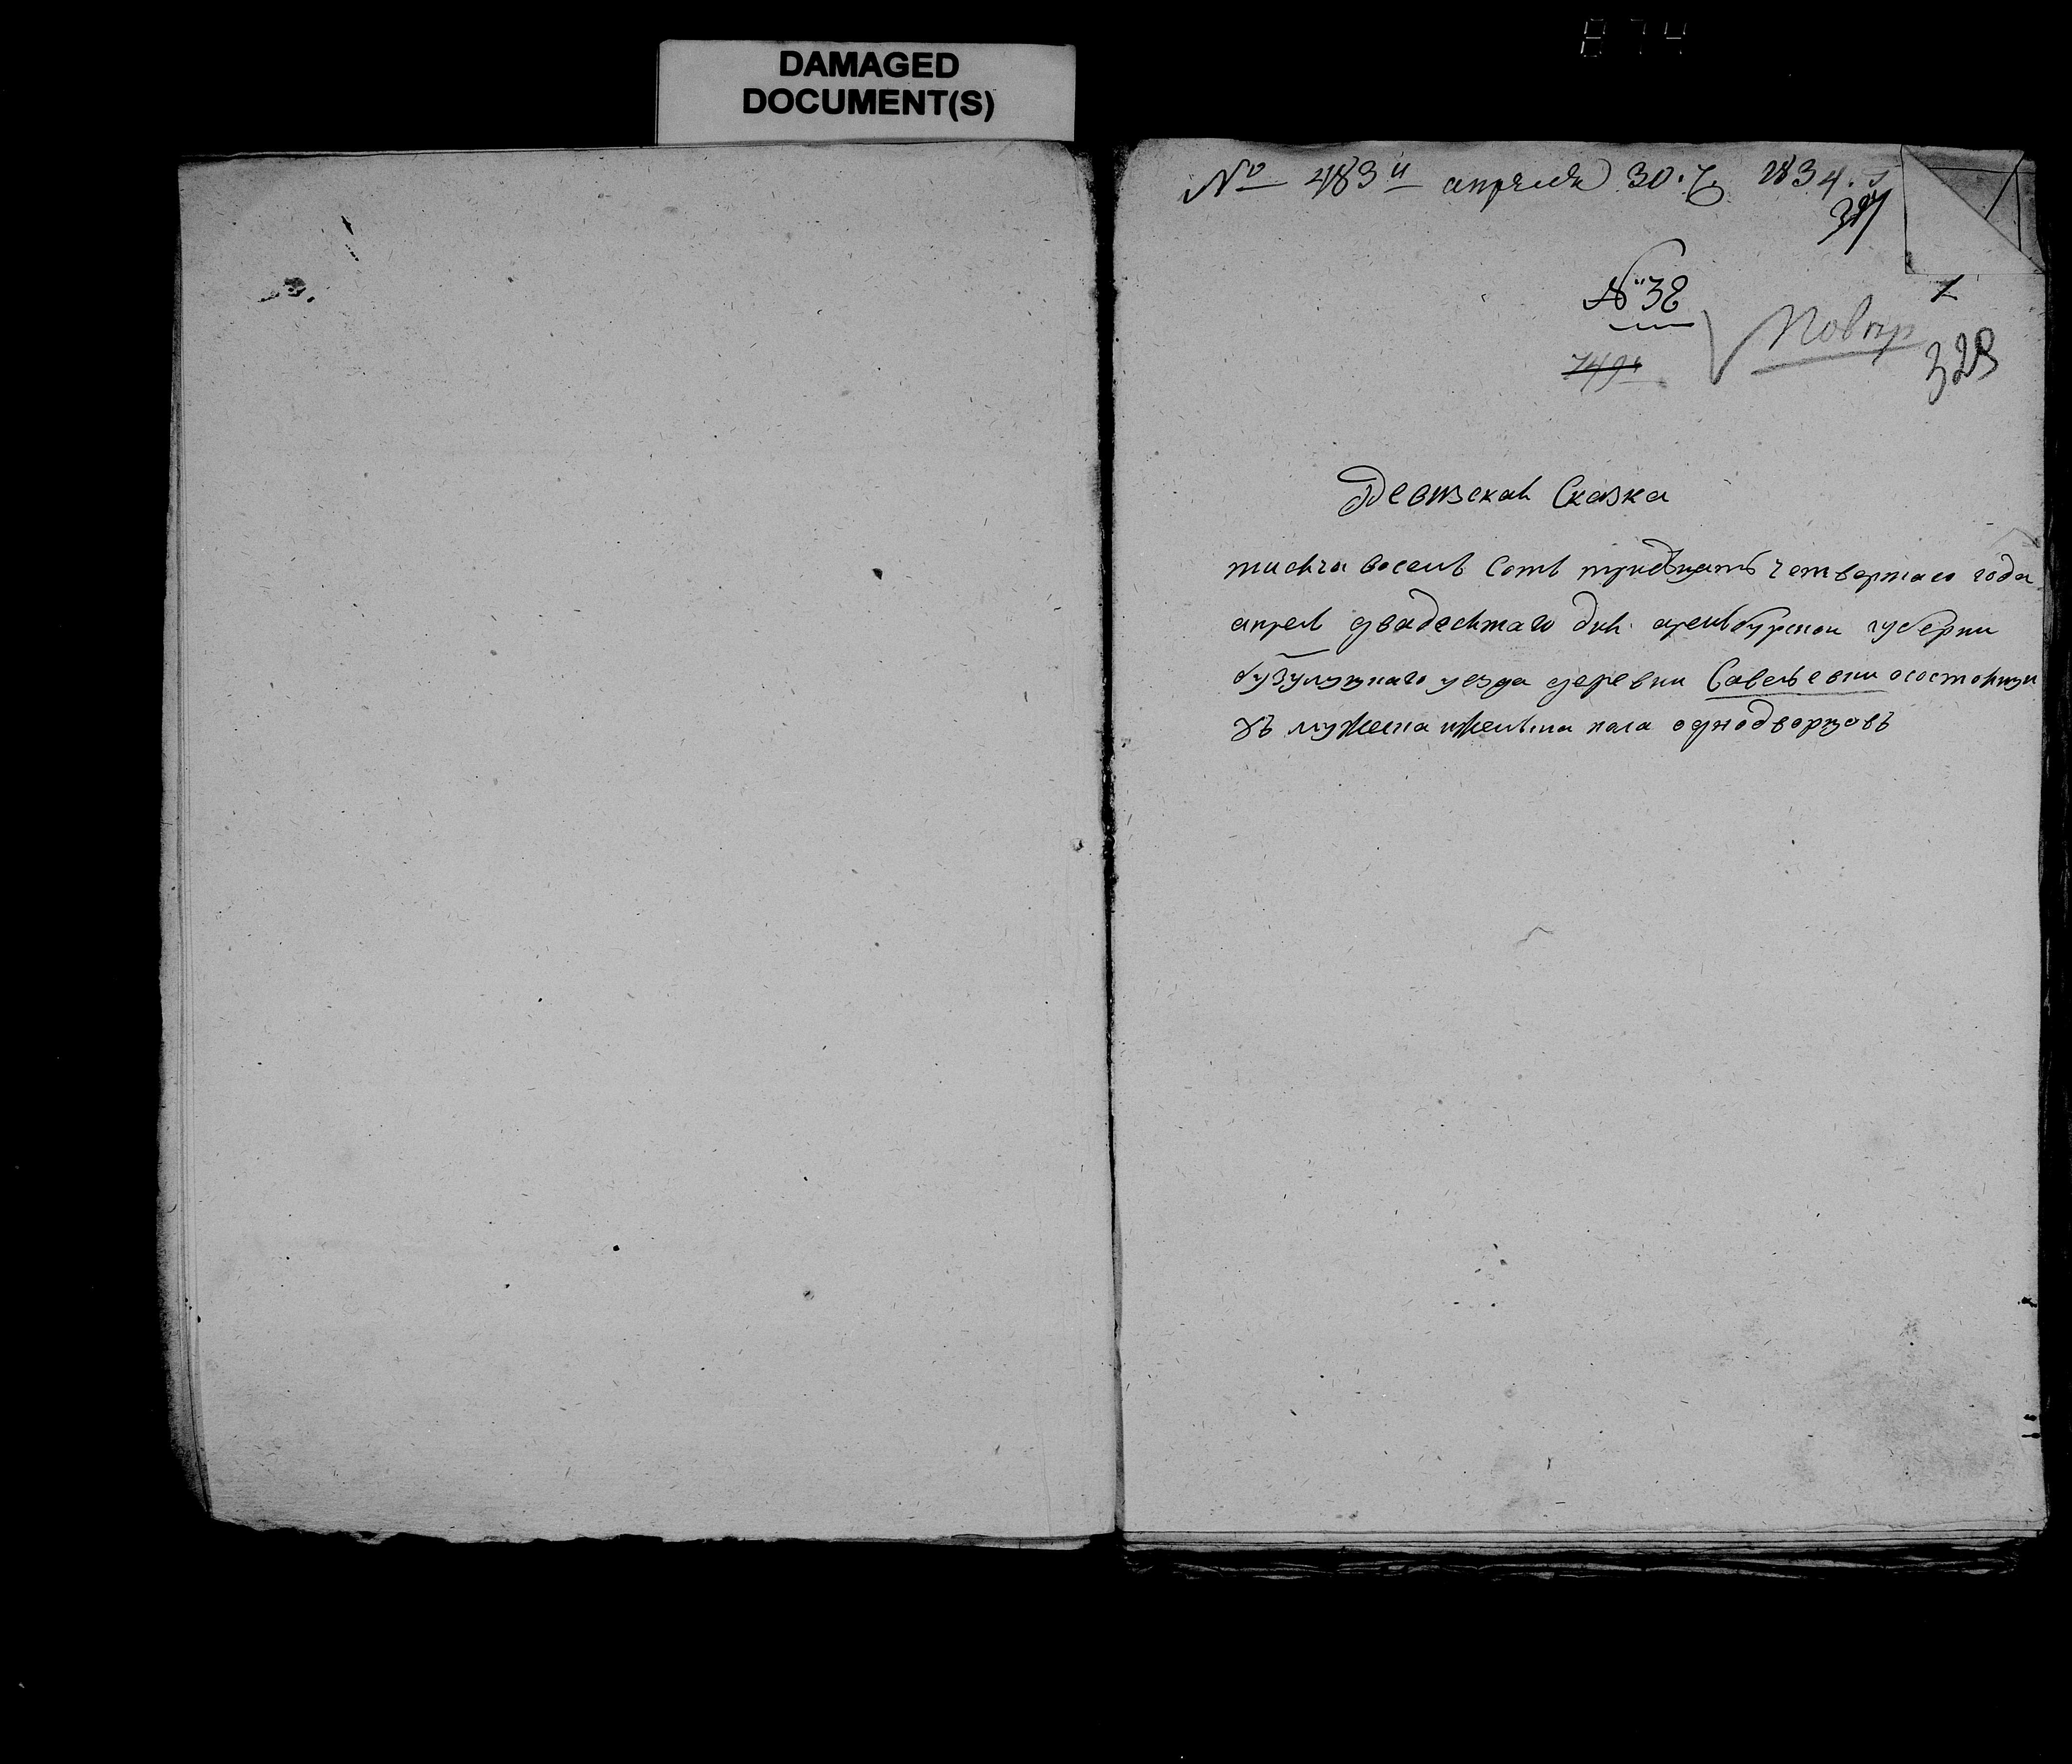 DAMAGED
DOCUMENT(S)
874
№ 483й апреля 30. ч. 1834. г
№ 38
1
Повпр
328
Ревизская Сказка
тисяча восемь сотъ тридцать четвертаго года
апреля двадесятаго дня оренбурской губерни
бузулуцкаго уезда деревни Савельевки осостоящи
хъ мужеска иженска пола однодворцовъ